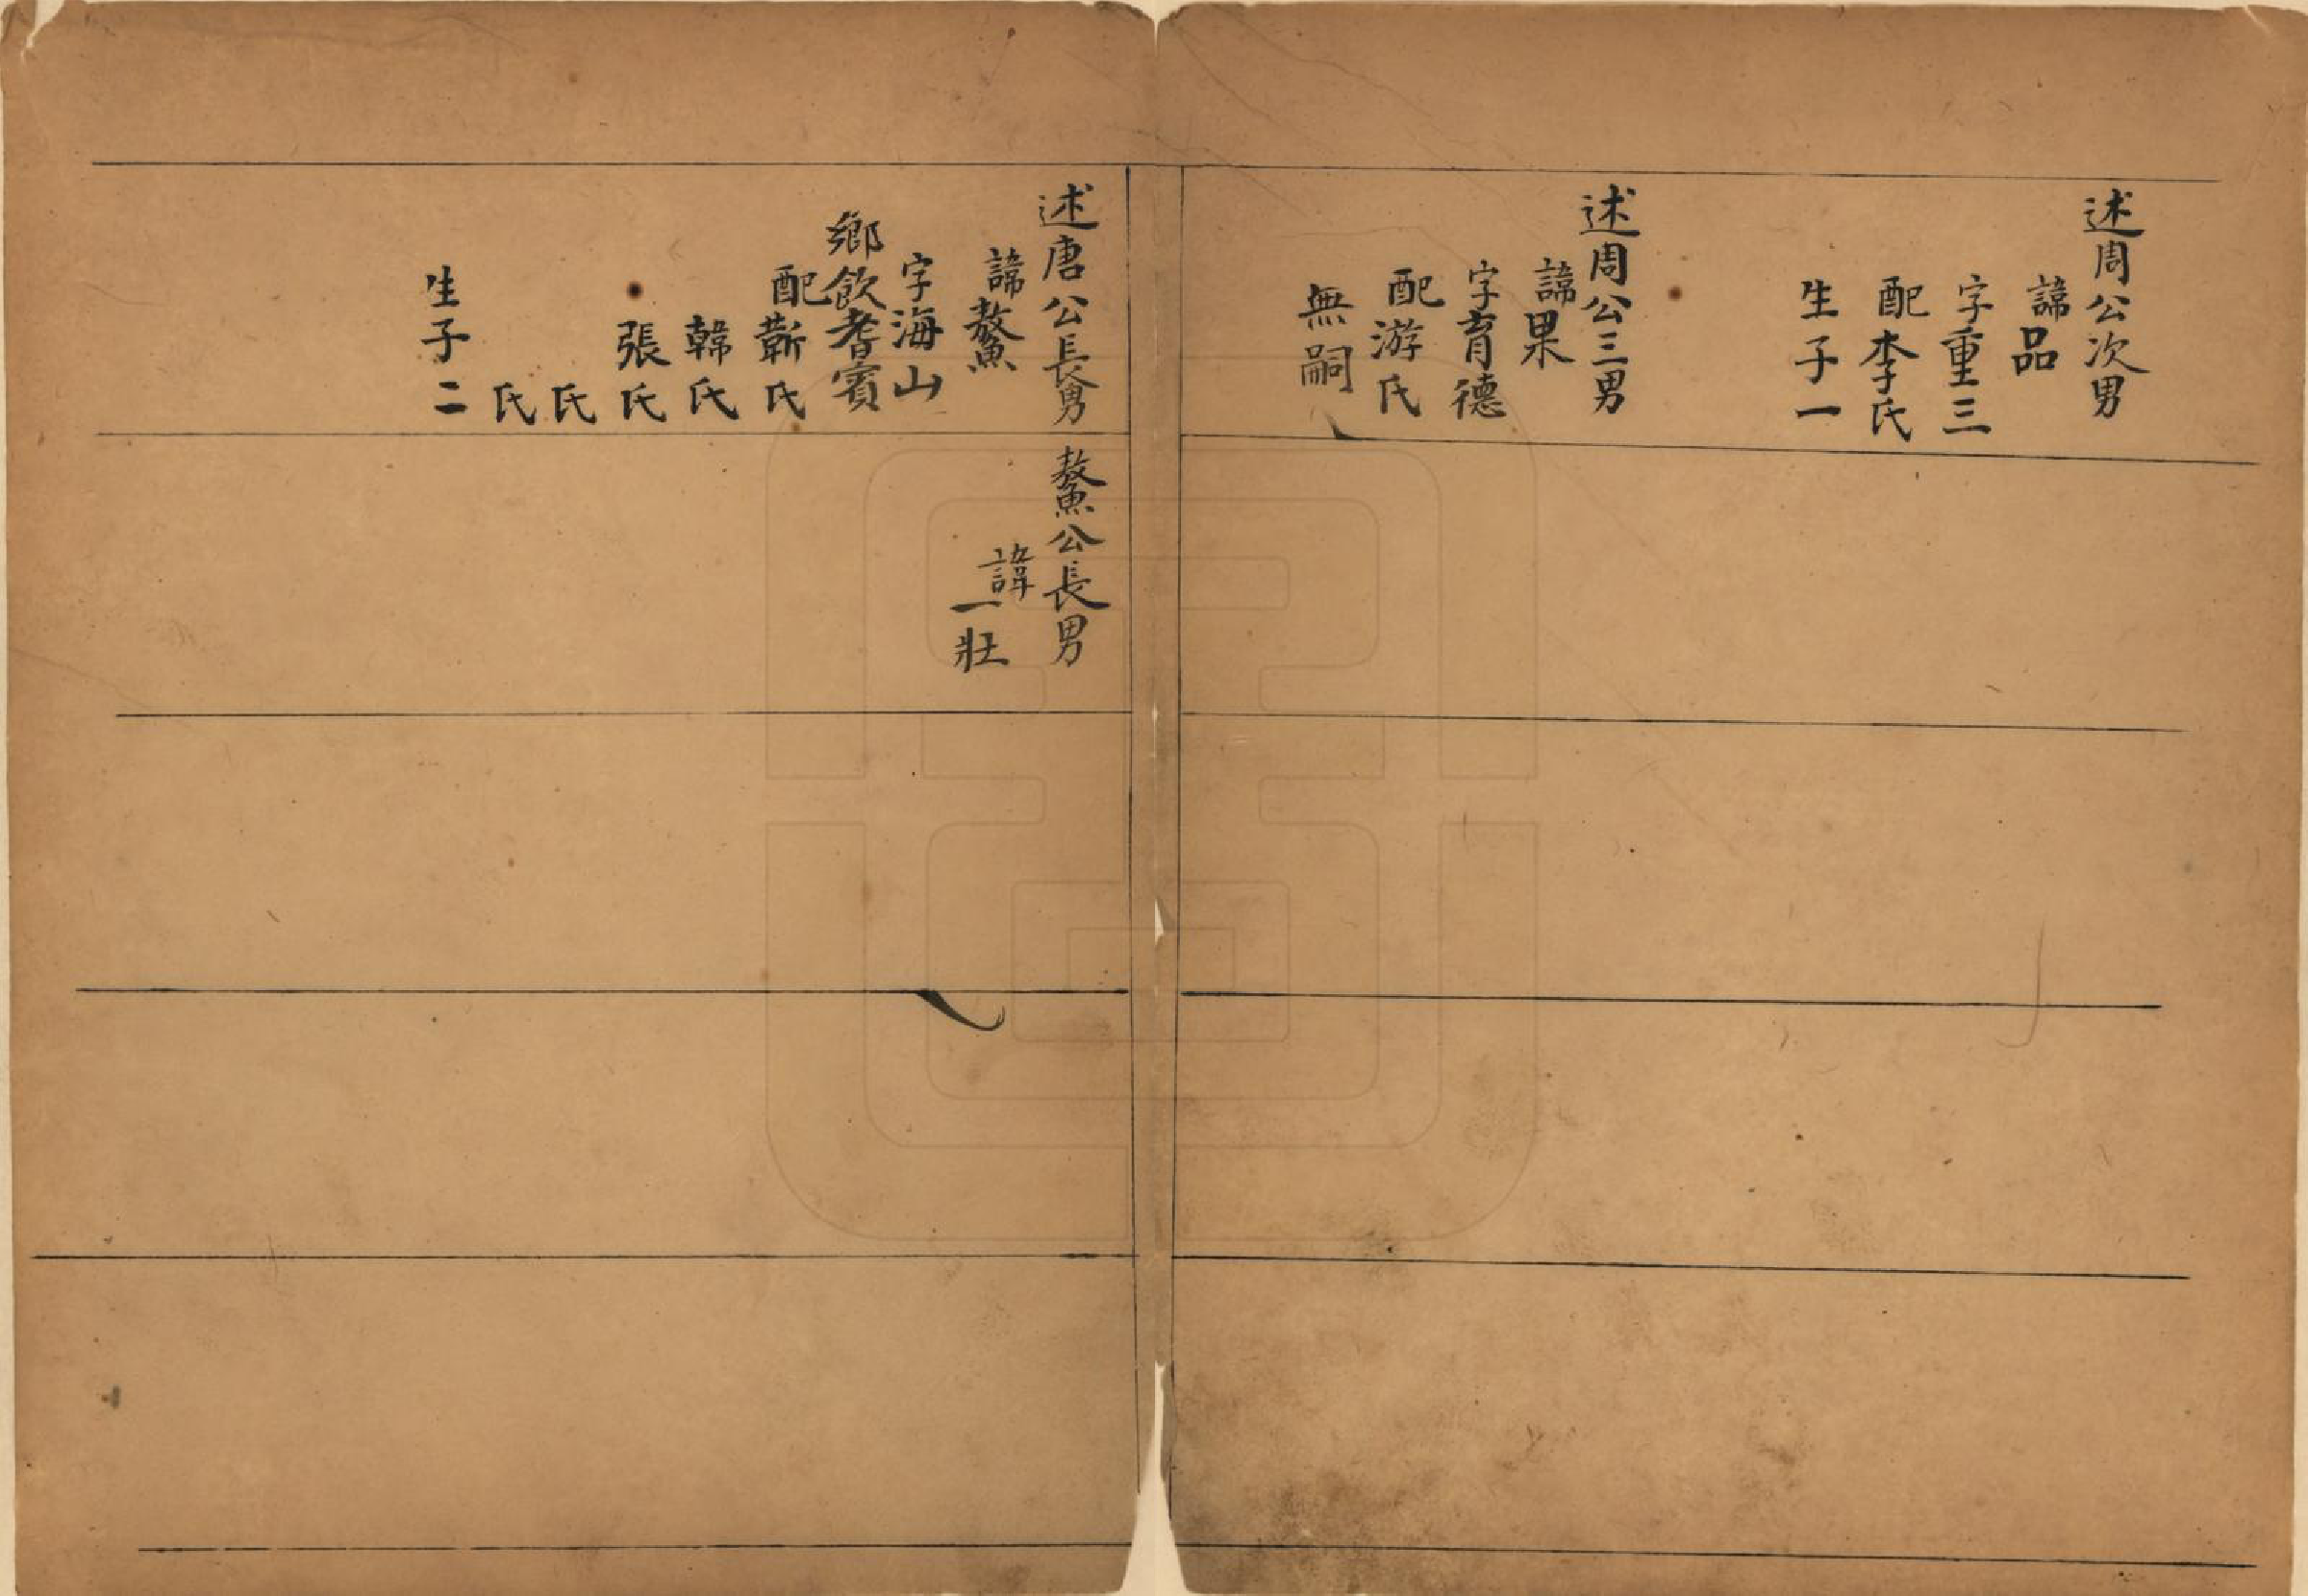 述周公次男
諱品
字重三
配李氏
生子一
述周公三男
諱果
字育德
配游氏
無嗣
述唐公長男
諱鰲
字海山
鄉飲耆賓
配靳氏
韓氏
張氏
氏
氏
生子二
鰲公長男
諱一壯